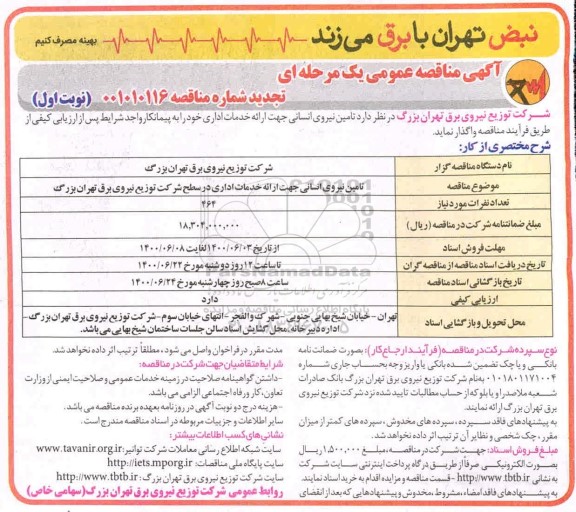 نبض تهران با برق می‌زند
بهینه مصرف کنیم
آگهی مناقصه عمومی یک مرحله ای
تجدید شماره مناقصه ۰۰۱۰۱۰۱۱۶ (نوبت اول)
شرکت توزیع نیروی برق تهران بزرگ در نظر دارد تامین نیروی انسانی جهت ارائه خدمات اداری خود را به پیمانکار واجد شرایط پس از ارزیابی کیفی از
طریق فرآیند مناقصه واگذار نماید.
شرح مختصری از کار:
نام دستگاه مناقصه گزار | شرکت توزیع نیروی برق تهران بزرگ
موضوع مناقصه | تامین نیروی انسانی جهت ارائه خدمات اداری در سطح شرکت توزیع نیروی برق تهران بزرگ
تعداد نفرات مورد نیاز | ۴۶۴
مبلغ ضمانتنامه شرکت در مناقصه (ریال) | ۱۸,۳۰۴,۰۰۰,۰۰۰
مهلت فروش اسناد | از تاریخ ۱۴۰۰/۰۶/۰۳ لغایت ۱۴۰۰/۰۶/۰۸
تاریخ دریافت اسناد مناقصه از مناقصه گران | تا ساعت ۱۲ روز دوشنبه مورخ ۱۴۰۰/۰۶/۲۲
تاریخ بازگشائی اسناد مناقصه | ساعت ۸ صبح روز چهارشنبه مورخ ۱۴۰۰/۰۶/۲۴
ارزیابی کیفی | دارد
محل تحویل و بازگشایی اسناد | تهران - خیابان شیخ بهایی جنوبی - شهرک والفجر - انتهای خیابان سوم - شرکت توزیع نیروی برق تهران بزرگ -
اداره دبیرخانه، محل گشایش اسناد سالن جلسات ساختمان شیخ بهایی می‌باشد.
ParsNamadData
نوع سپرده شرکت در مناقصه (فرآیند ارجاع کار): بصورت ضمانت نامه
بانکی و یا چک تضمین شده بانکی یا واریز وجه بحساب جاری شماره
۰۱۰۱۸۰۱۱۷۱۰۰۴ به نام شرکت توزیع نیروی برق تهران بزرگ بانک صادرات
شعبه ملاصدرا و یا بلوکه از حساب مطالبات تایید شده نزد شرکت توزیع نیروی
برق تهران بزرگ ارائه نمایند.
به پیشنهادهای فاقد سپرده، سپرده های مخدوش، سپرده های کمتر از میزان
مقرر، چک شخصی و نظایر آن ترتیب اثر داده نخواهد شد.
مبلغ فروش اسناد: جهت شرکت در مناقصه، مبلغ ۱,۵۰۰,۰۰۰ ریال
بصورت الکترونیکی صرفاً از طریق درگاه پرداخت اینترنتی سایت شرکت
به نشانی http://www.tbtb.ir - قسمت مناقصه و مزایده اقدام به خرید اسناد نمایند.
به پیشنهادهای فاقد امضاء، مشروط، مخدوش و پیشنهادهایی که بعد از انقضای
مدت مقرر در فراخوان واصل می شود، مطلقاً ترتیب اثر داده نخواهد شد.
شرایط متقاضیان جهت شرکت در مناقصه:
- داشتن گواهینامه صلاحیت در زمینه خدمات عمومی و صلاحیت ایمنی از وزارت
تعاون، کار و رفاه اجتماعی الزامی می باشد.
- هزینه درج دو نوبت آگهی در روزنامه بعهده برنده مناقصه می باشد.
سایر اطلاعات و جزییات مربوطه در اسناد مناقصه مندرج است.
نشانی های کسب اطلاعات بیشتر:
سایت شبکه اطلاع رسانی معاملات شرکت توانیر: www.tavanir.org.ir
سایت پایگاه ملی مناقصات: http://iets.mporg.ir
سایت شرکت توزیع نیروی برق تهران بزرگ: http://www.tbtb.ir
روابط عمومی شرکت توزیع نیروی برق تهران بزرگ (سهامی خاص)